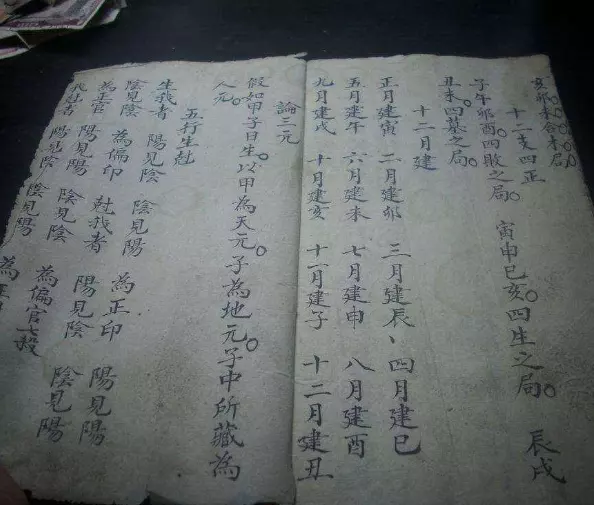 亥卯未合木局。
十二支四正
子午卯酉。四敗之局。寅申巳亥。四生之局。辰戌
丑未。四墓之局。
十二月建
正月建寅 二月建卯 三月建辰、四月建巳
五月建午 六月建未 七月建申 八月建酉
九月建戌 十月建亥 十一月建子 十二月建丑
論三元
假如甲子日生。以甲為天元。子為地元。子中所藏為
人元。
五行生尅
生我者 陽見陰 陰見陽 為正印 陽見陽
陰見陰 為偏印 尅我者 陽見陰 陰見陽
為正官 陽見陽 陰見陰 為偏官七殺
我尅者 陽見陰 陰見陽 為正